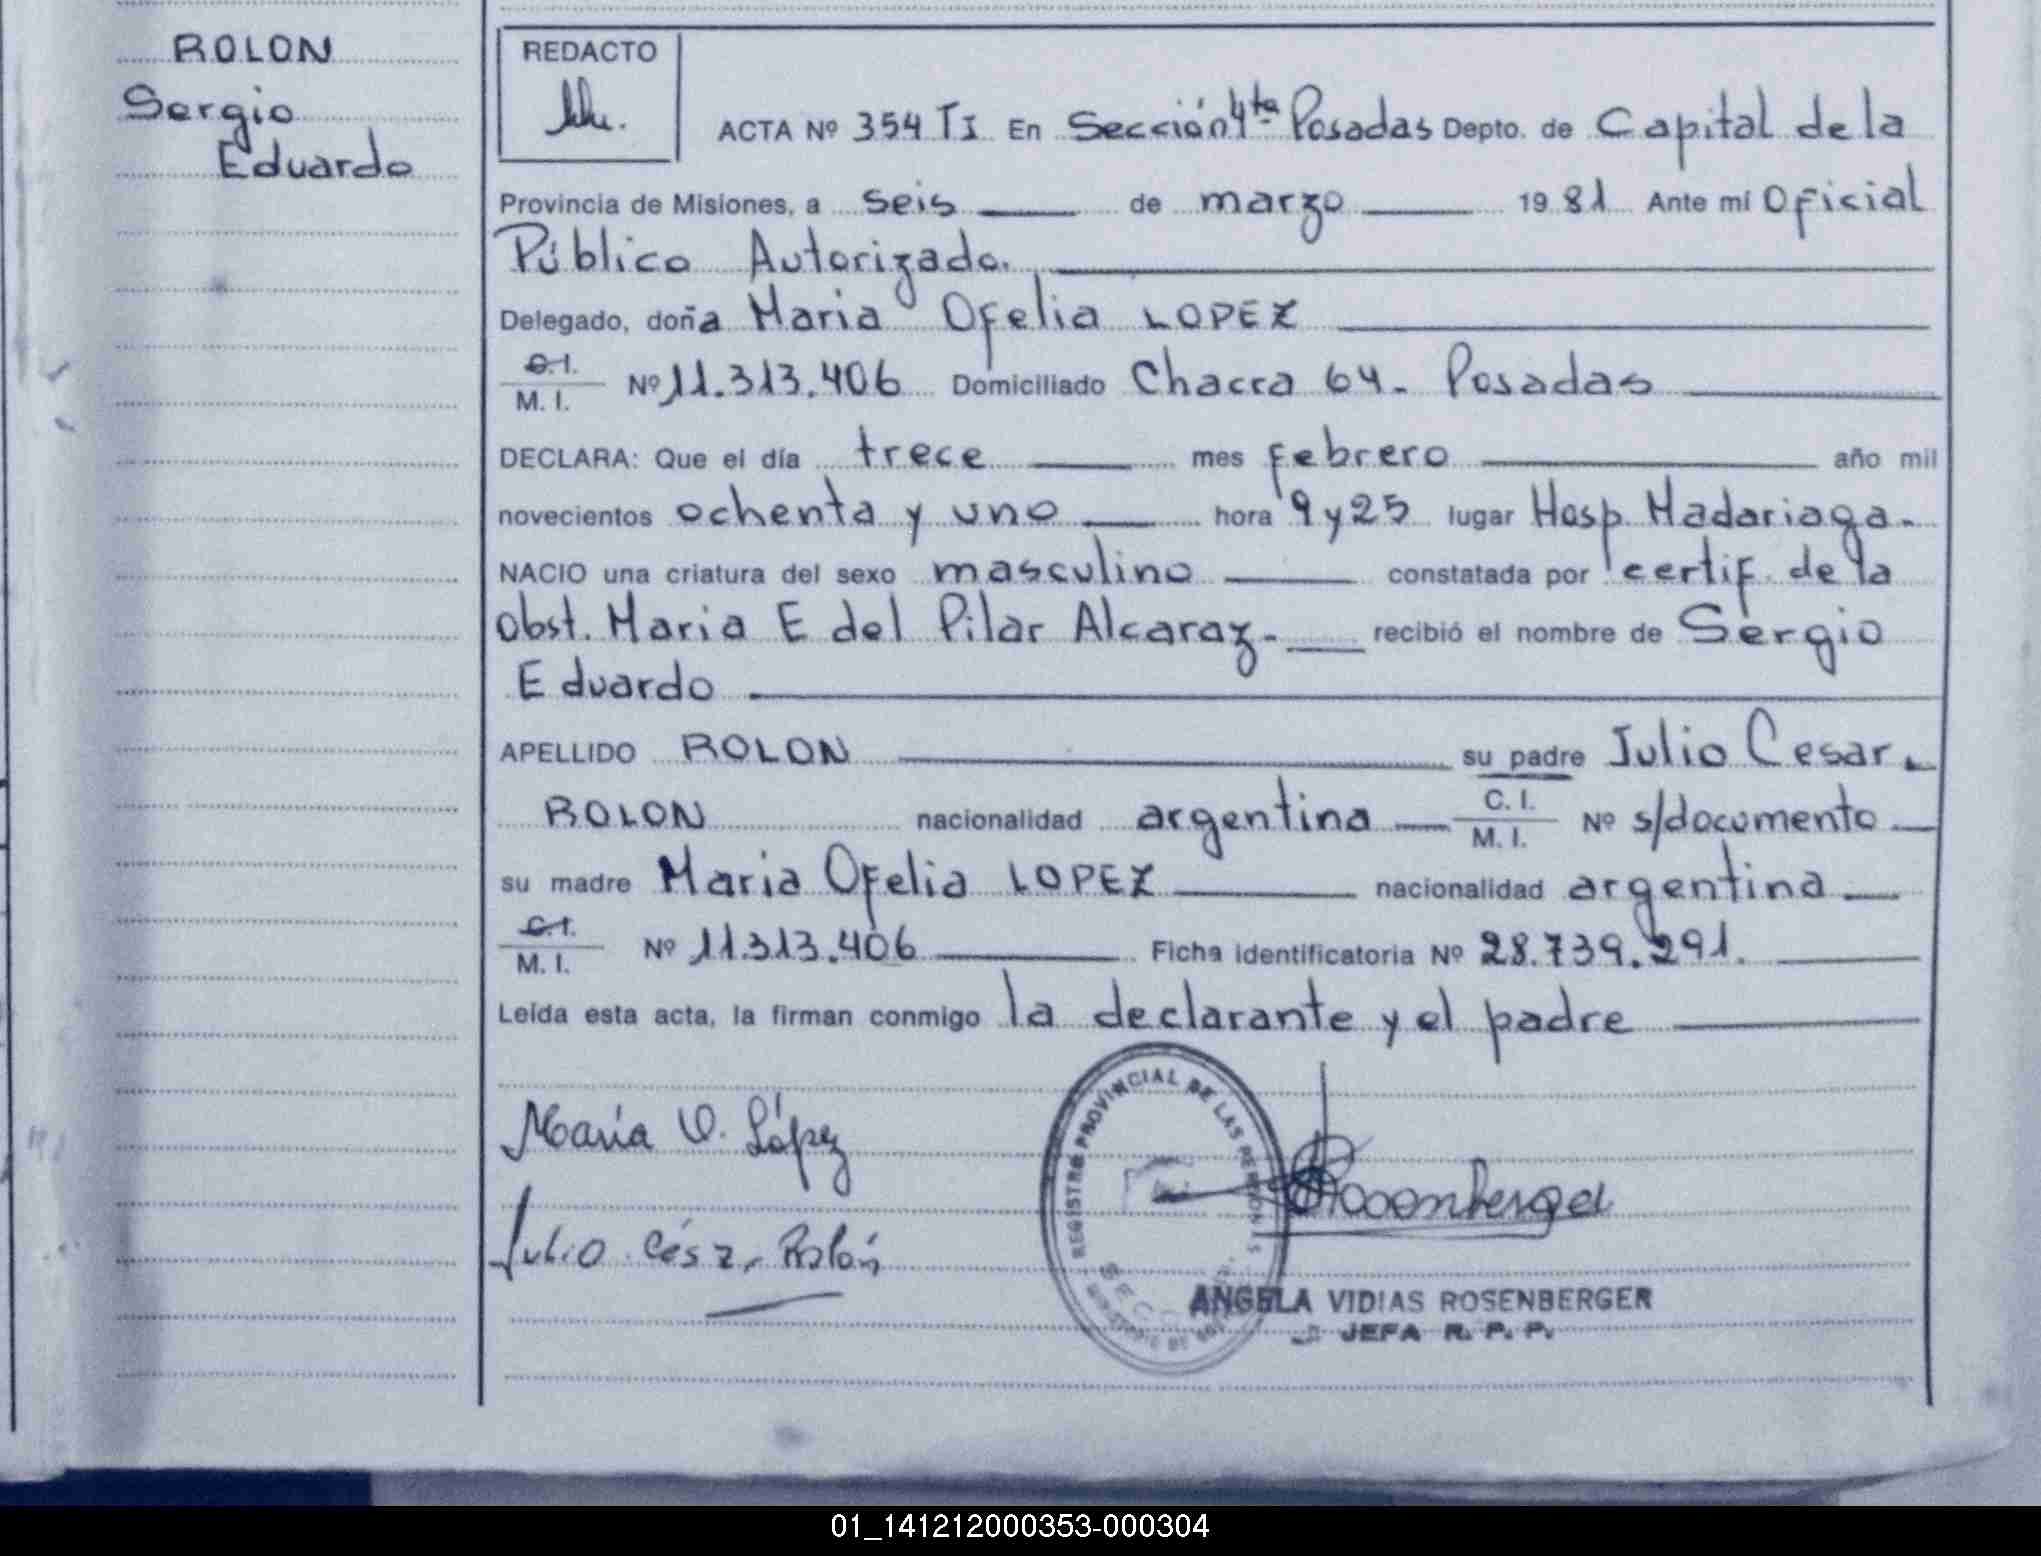 ROLON
Sergio
Eduardo
REDACTO
ACTA Nº 354 TI En Sección 4ta Posadas Depto. de Capital de la
Provincia de Misiones, a seis de marzo 1981 Ante mí Oficial
Público Autorizado.
Delegado, doña Maria Ofelia LOPEZ
C.I.
M.I. Nº 11.313.406 Domiciliado Chacra 64- Posadas
DECLARA: Que el día trece mes febrero año mil
novecientos ochenta y uno hora 9 y 25 lugar Hosp. Madariaga.
NACIO una criatura del sexo masculino constatada por certif. de la
obst. Maria E del Pilar Alcaraz- recibió el nombre de Sergio
Eduardo
APELLIDO ROLON su padre Julio Cesar
ROLON nacionalidad argentina C.I. M.I. Nº s/documento
su madre Maria Ofelia LOPEZ nacionalidad argentina
C.I.
M.I. Nº 11.313.406 Ficha identificatoria Nº 28.739.291.
Leída esta acta, la firman conmigo la declarante y el padre
María O. López
Julio César Rolón
REGISTRO PROVINCIAL DE LAS PERSONAS
Rosenberger
ANGELA VIDIAS ROSENBERGER
JEFA R. P. P.
01_141212000353-000304